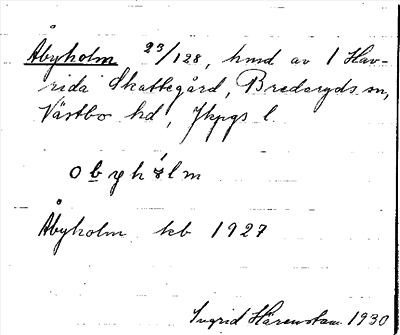 Åbyholm 23/128, hmd av 1 Hav-
rida Skattegård, Bredaryds sn,
Västbo hd, Jkpgs l.
obyhólm
Åbyholm kb 1927
Ingrid Härenstam 1930